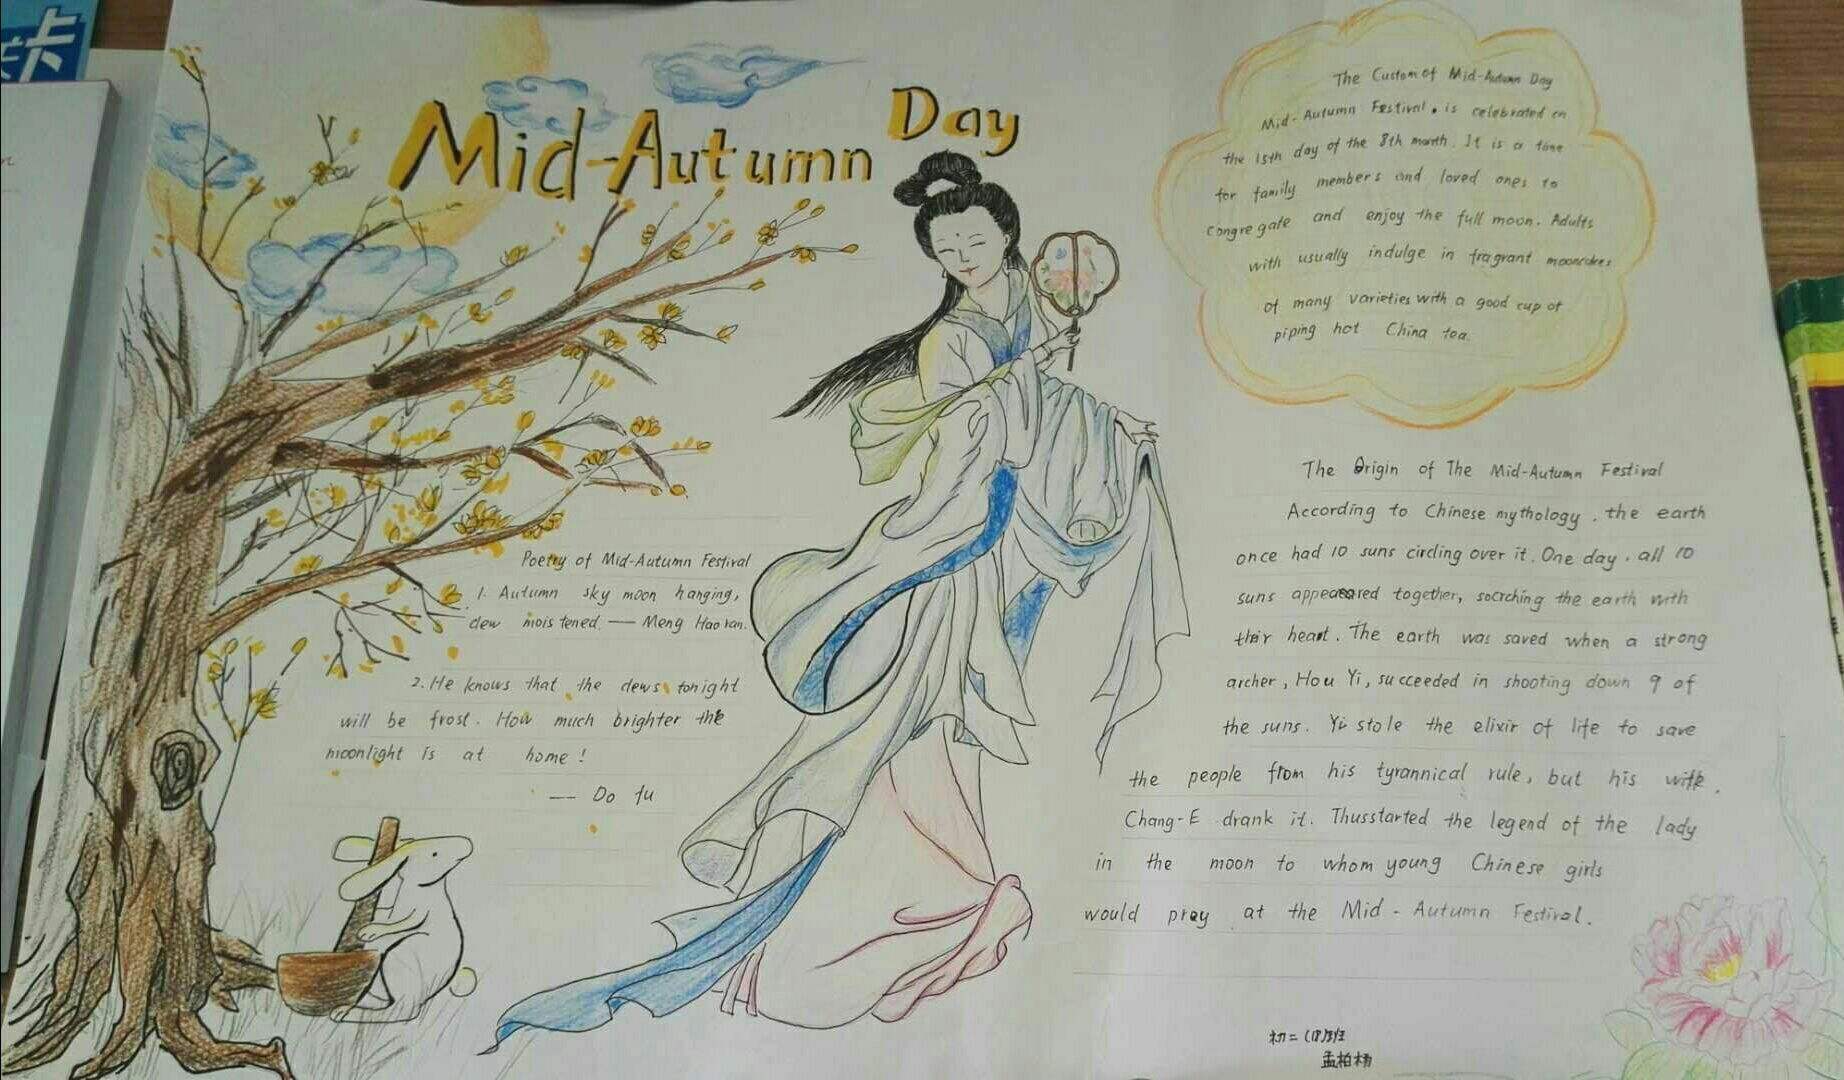 卡
Mid-Autumn Day
The Custom of Mid-Autumn Day
Mid-Autumn Festival. is celebrated on
the 15th day of the 8th month. It is a time
for family members and loved ones to
congregate and enjoy the full moon. Adults
with usually indulge in fragrant mooncakes
of many varieties with a good cup of
piping hot China tea.
Poetry of Mid-Autumn Festival
1. Autumn sky moon hanging,
dew moistened. — Meng Haoran.
2. He knows that the dews tonight
will be frost. How much brighter the
moonlight is at home!
— Do fu
The Origin of The Mid-Autumn Festival
According to Chinese mythology. the earth
once had 10 suns circling over it. One day. all 10
suns appeared together, socrching the earth with
their heart. The earth was saved when a strong
archer, Hou Yi, succeeded in shooting down 9 of
the suns. Yi stole the elixir of life to save
the people from his tyrannical rule, but his wife.
Chang-E drank it. Thusstarted the legend of the lady
in the moon to whom young Chinese girls
would pray at the Mid-Autumn Festival.
初二(18)班
孟柏杨